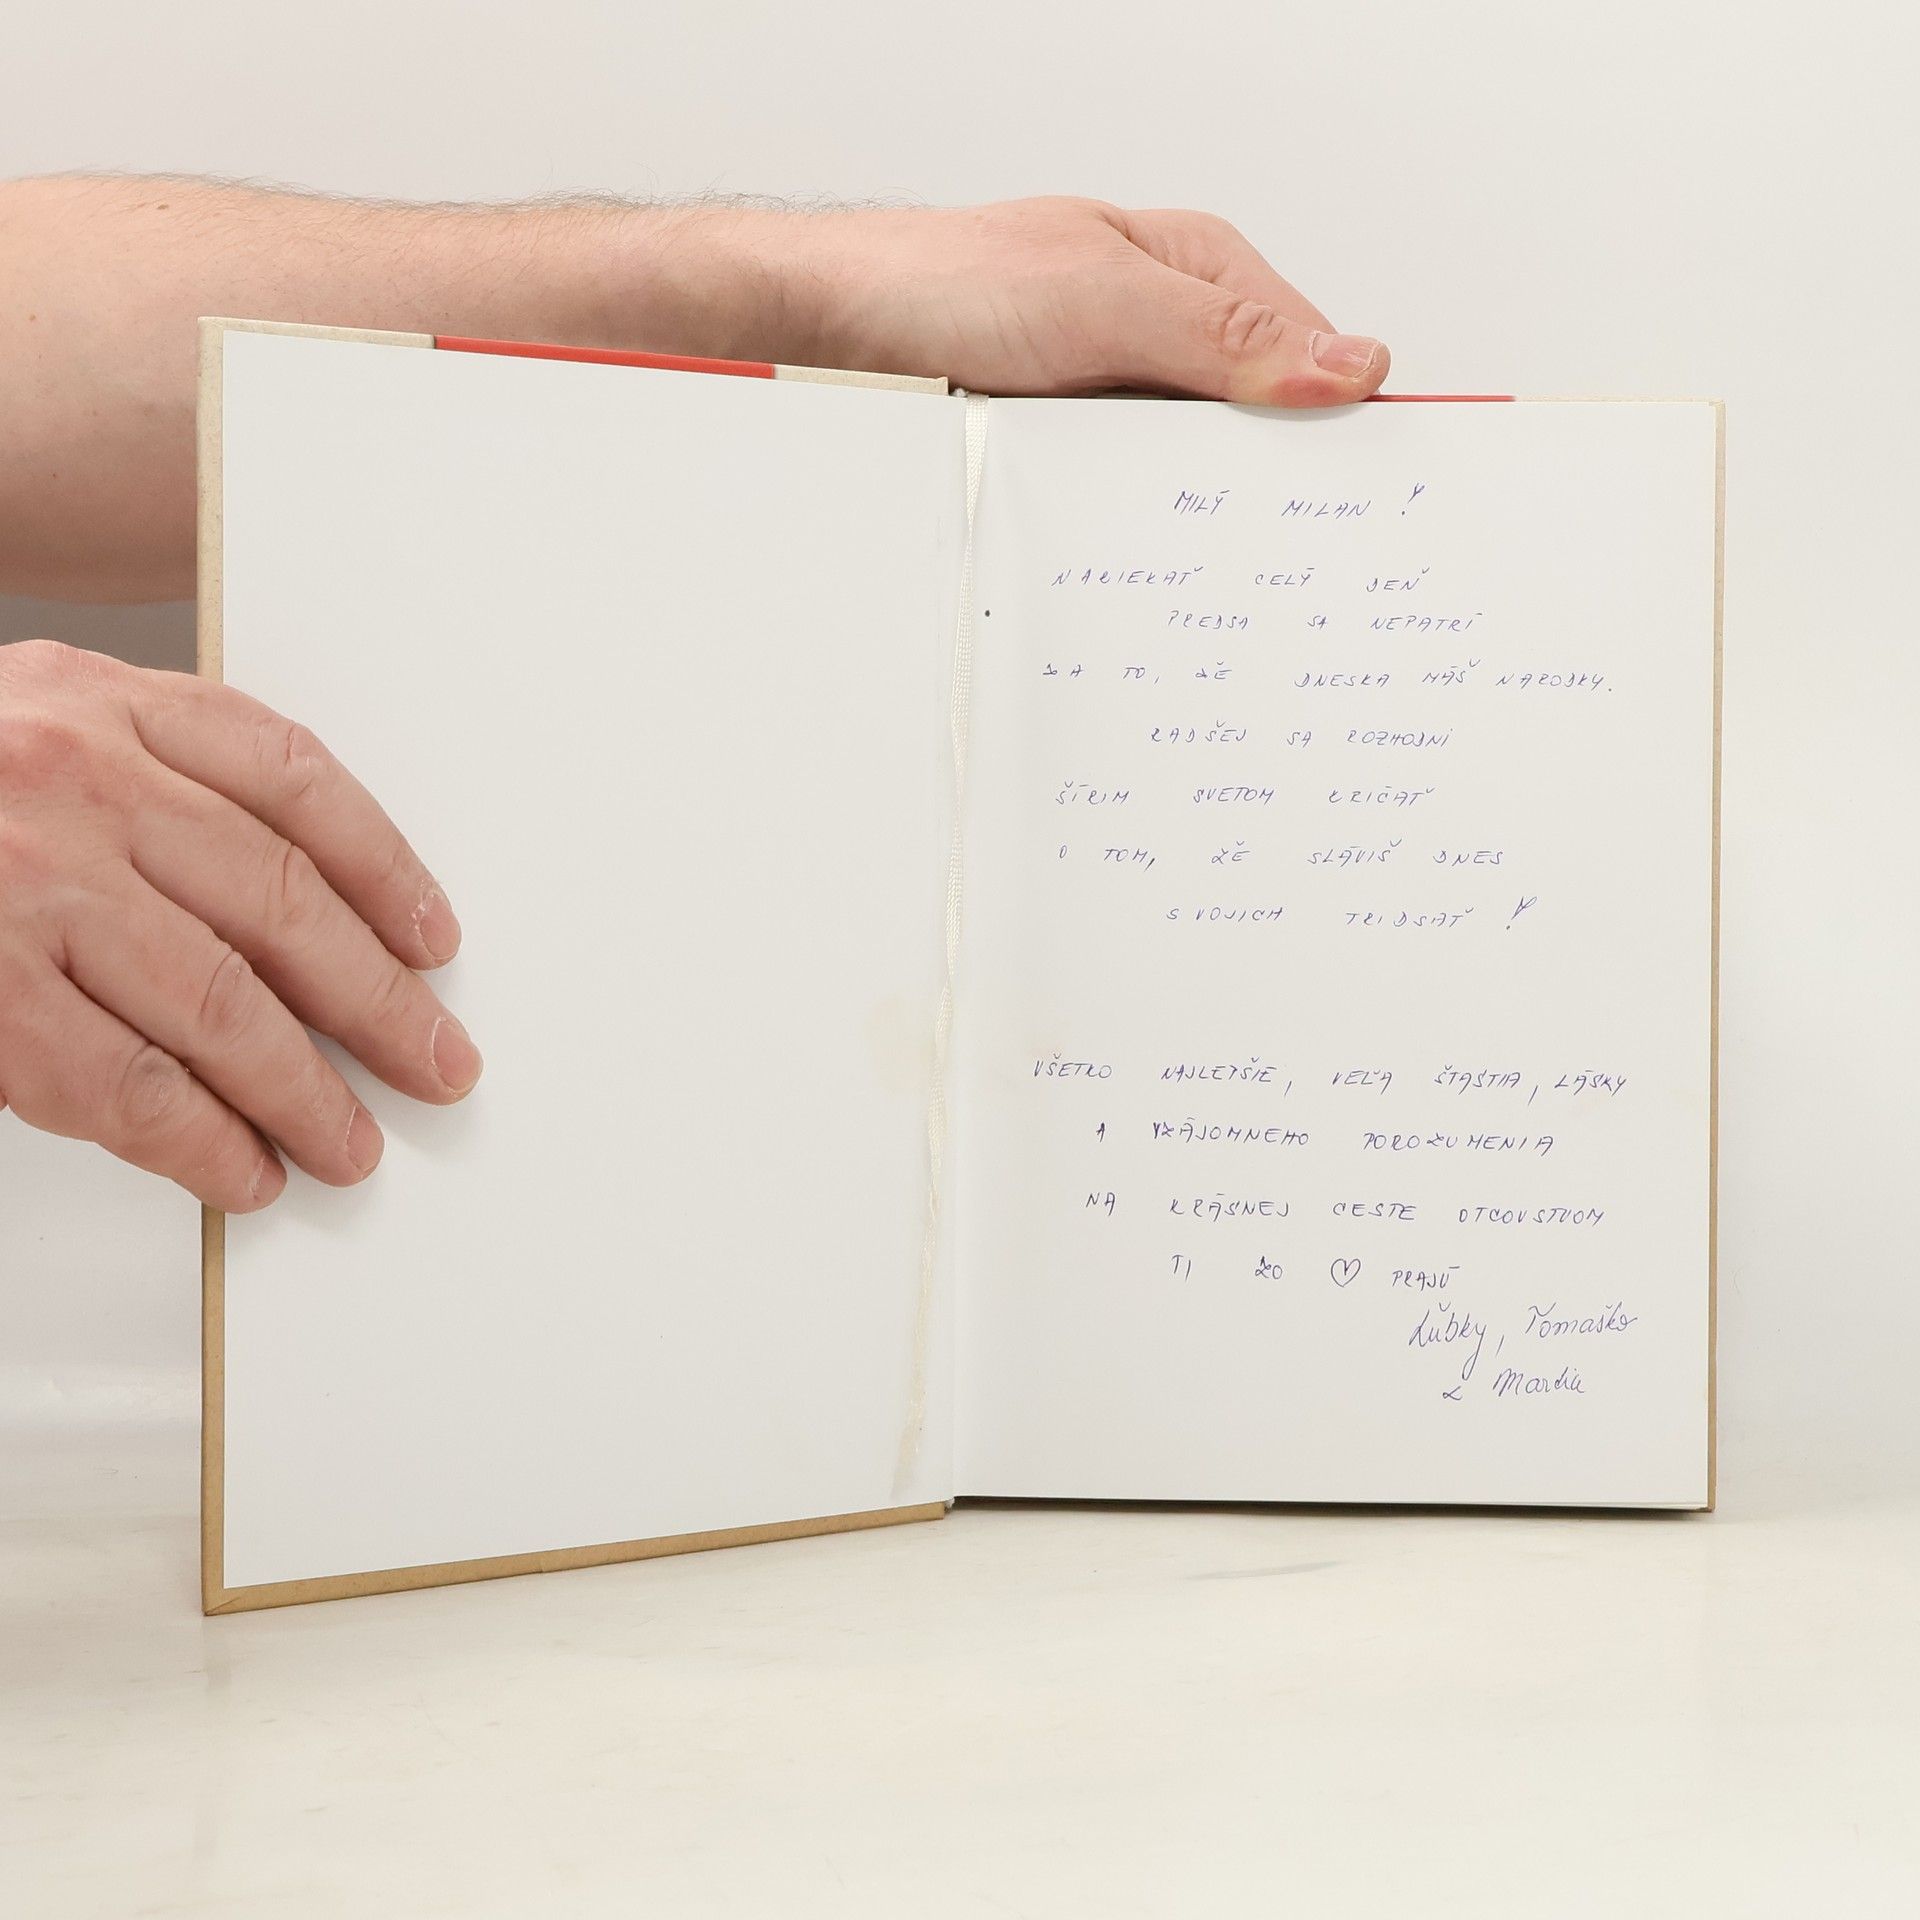 MILÝ MILAN !
NARIEKAŤ CELÝ DEŇ
PREDSA SA NEPATRÍ
ZA TO, ŽE DNESKA MÁŠ NARODKY.
RADŠEJ SA ROZHODNI
ŠÍRIM SVETOM KRIČAŤ
O TOM, ŽE SLÁVIŠ DNES
SVOJICH TRIDSAŤ !
VŠETKO NAJLEPŠIE, VEĽA ŠŤASTIA, LÁSKY
A VZÁJOMNEHO POROZUMENIA
NA KRÁSNEJ CESTE OTCOVSTVOM
TI ZO ♡ PRAJÚ
Ľubky, Tomaško
&